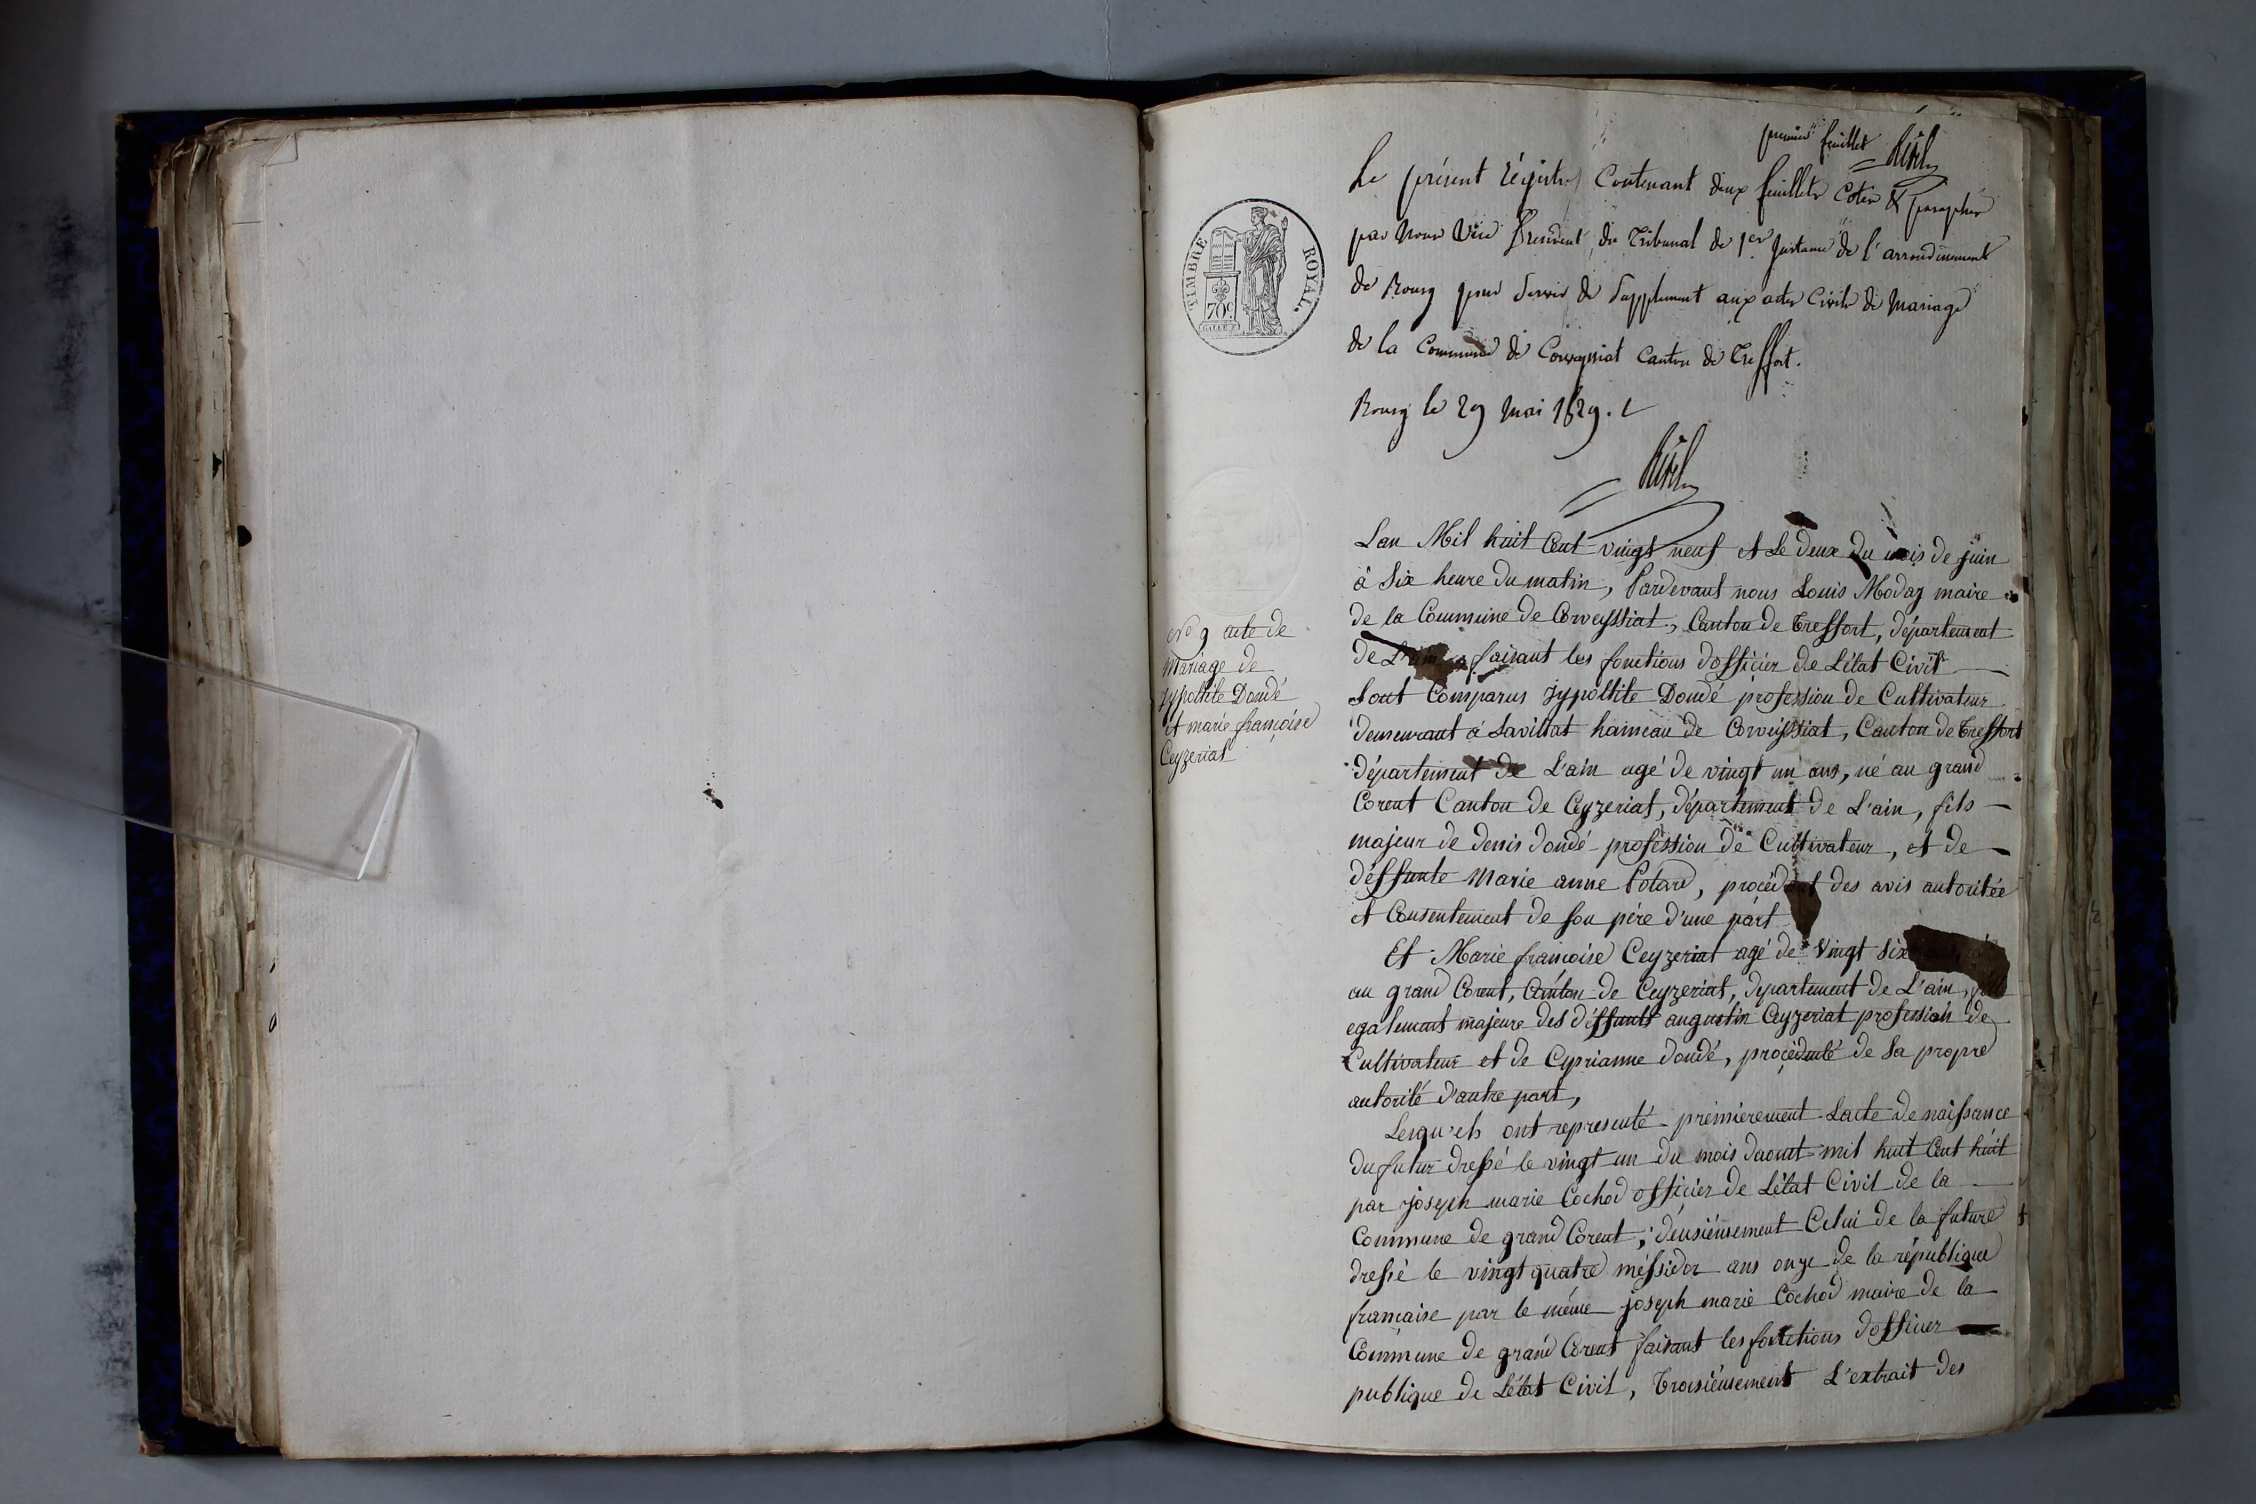 premier feuillet
Le présent régistre Contenant deux feuillets Cotés & paraphés
par Nous Vice Président du Tribunal de 1ere Instance de l'arrondissement
de Bourg pour Servir de Supplement aux actes Civils de Mariage
de la Commune de Corveyssiat Canton de Treffort.
Bourg le 29 Mai 1829.
TIMBRE ROYAL.
70c.
No 9 acte de
Mariage de
hypollite Dondé
et marie françoise
Ceyzeriat
Lan Mil huit Cent vingt neuf et Le deux du mois de juin
à Six heure du matin, Pardevant nous Louis Moday maire
de la Commune de Corveyssiat, Canton de Treffort, département
de L'ain faisant les fonctions d'officier de L'état Civil
Sont Comparus hypollite Dondé profession de Cultivateur
demeurant à Savillat hameau de Corveyssiat, Canton de Treffort
département de L'ain agé de vingt un ans, né au grand
Corent Canton de Ceyzeriat, département de L'ain, fils
majeur de denis dondé profession de Cultivateur, et de
déffunte Marie anne Potard, procédant des avis autoritée
et Consentement de Son père d'une part
Et Marie françoise Ceyzeriat agé de Vingt Six
au grand Corent, Canton de Ceyzeriat, département de L'ain,
egalement majeure des déffunts augustin Ceyzeriat profession de
Cultivateur et de Cyprianne dondé, procédante de Sa propre
autorité d'autre part,
Lesqu'els ont representé premierement Lacte de naissance
du futur dressé le vingt un du mois daout mil huit Cent huit
par joseph marie Cochod officier de L'état Civil de la
Commune de grand Corent; deusiémement Celui de la future
dressé le vingt quatre méssidor ans onze de la république
française par le même joseph marie Cochod maire de la
Commune de grand Corent faisant les fonctions d'officier
publique de L'état Civil, Troisiémement L'extrait des